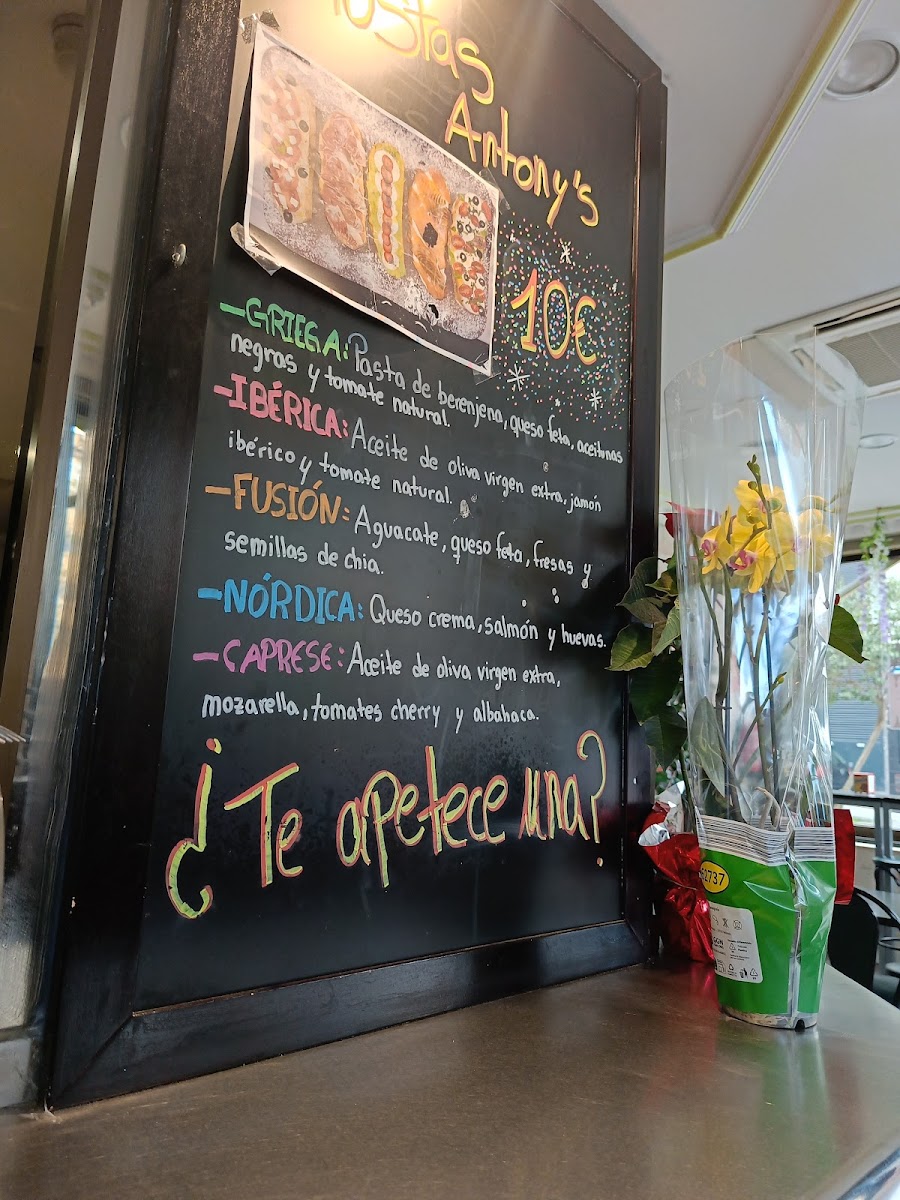 Tostas
Antony's
10€
-GRIEGA: Pasta de berenjena, queso feta, aceitunas
negras y tomate natural.
-IBÉRICA: Aceite de oliva virgen extra, jamón
ibérico y tomate natural.
-FUSIÓN: Aguacate, queso feta, fresas y
semillas de chia.
-NÓRDICA: Queso crema, salmón y huevas.
-CAPRESE: Aceite de oliva virgen extra,
mozarella, tomates cherry y albahaca.
¿Te apetece una?
52737